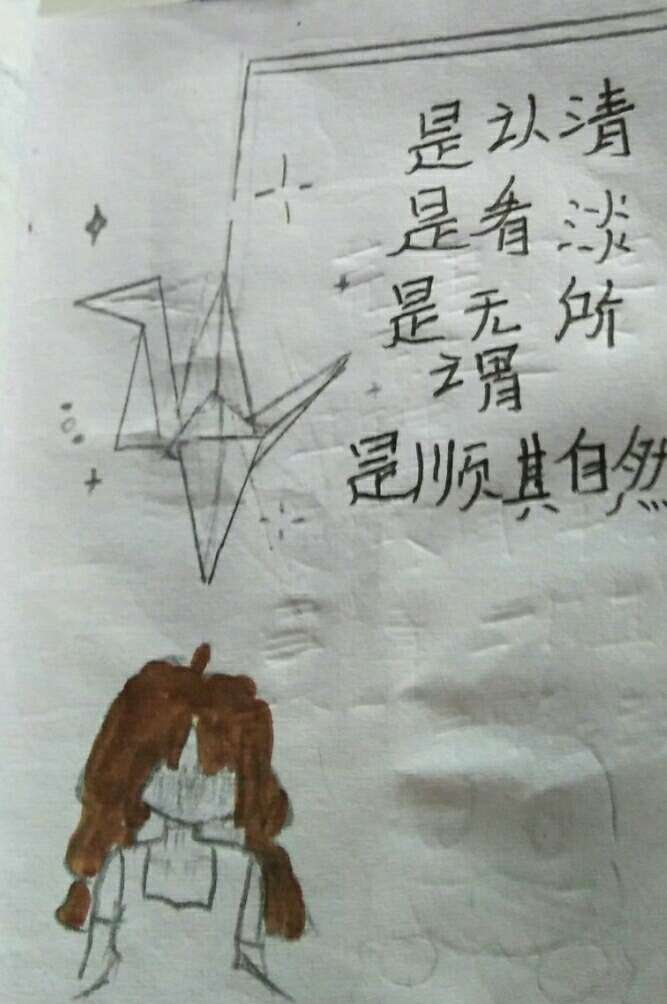 是认清
是看淡
是无所
谓
是顺其自然